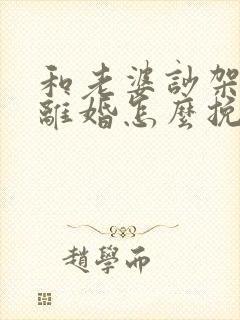 和老婆訡架
離婚怎麼挽
趙學而